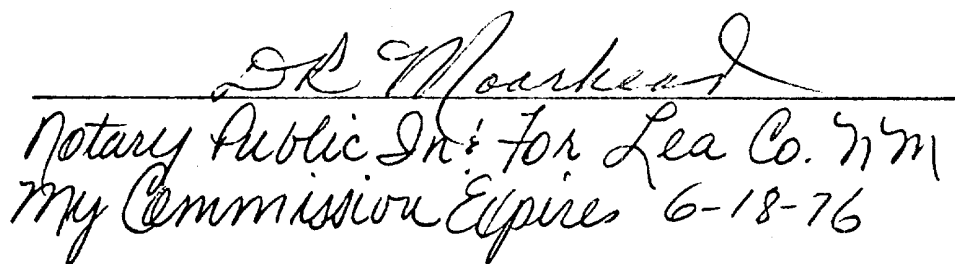 DR Moorhead
Notary Public In & For Lea Co. NM
My Commission Expires 6-18-76